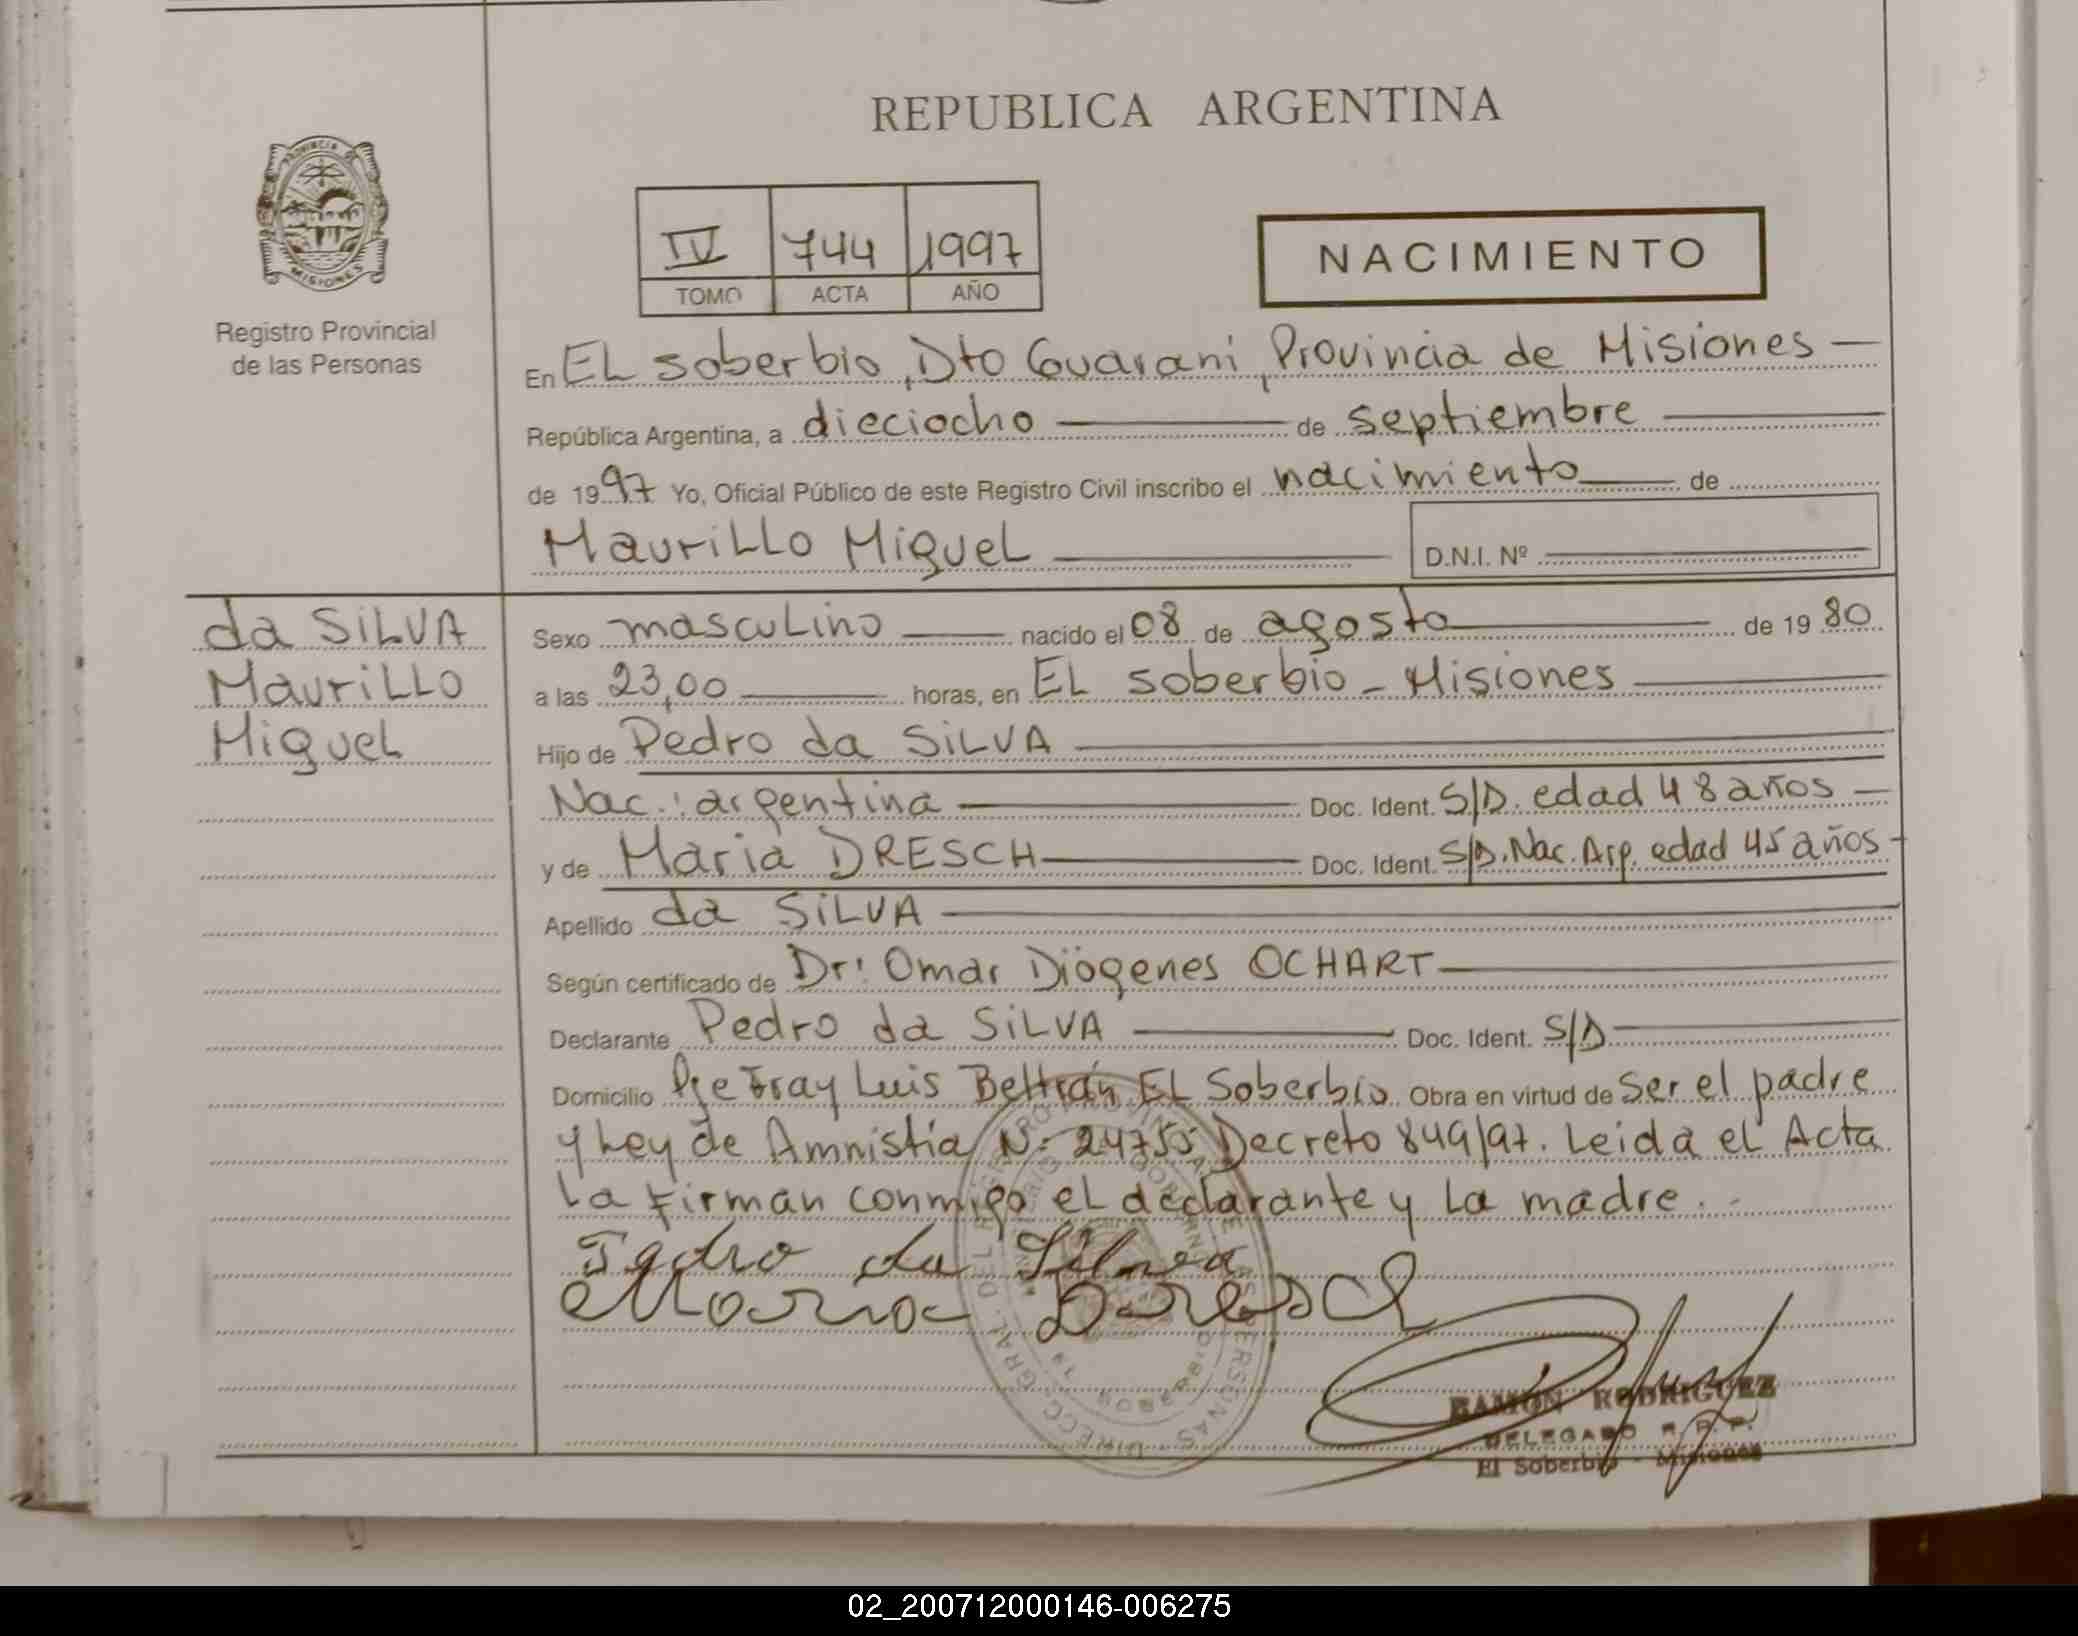 REPUBLICA ARGENTINA
PROVINCIA DE
MISIONES
Registro Provincial
de las Personas
IV 744 1997
TOMO ACTA AÑO
NACIMIENTO
En EL Soberbio, Dto Guarani, Provincia de Misiones —
República Argentina, a dieciocho — de septiembre —
de 1997 Yo, Oficial Público de este Registro Civil inscribo el nacimiento — de
Maurillo Miguel — D.N.I. Nº —
da SILVA
Maurillo
Miguel
Sexo masculino — nacido el 08 de agosto — de 1980
a las 23,00 — horas, en EL Soberbio - Misiones —
Hijo de Pedro da SILVA —
Nac.: argentina — Doc. Ident. S/D. edad 48 años —
y de Maria DRESCH — Doc. Ident. S/D. Nac. Arg. edad 45 años -
Apellido da SILVA —
Según certificado de Dr: Omar Diógenes OCHART —
Declarante Pedro da SILVA — Doc. Ident. S/D —
Domicilio Pje Fray Luis Beltrán EL Soberbio Obra en virtud de Ser el padre
y Ley de Amnistía N: 24755 Decreto 849/97. Leida el Acta
la firman conmigo el declarante y la madre. -
Pedro da Silva
Maria Dresch
RAMON RODRIGUEZ
DELEGADO R. P. P.
El Soberbio - Misiones
02_200712000146-006275